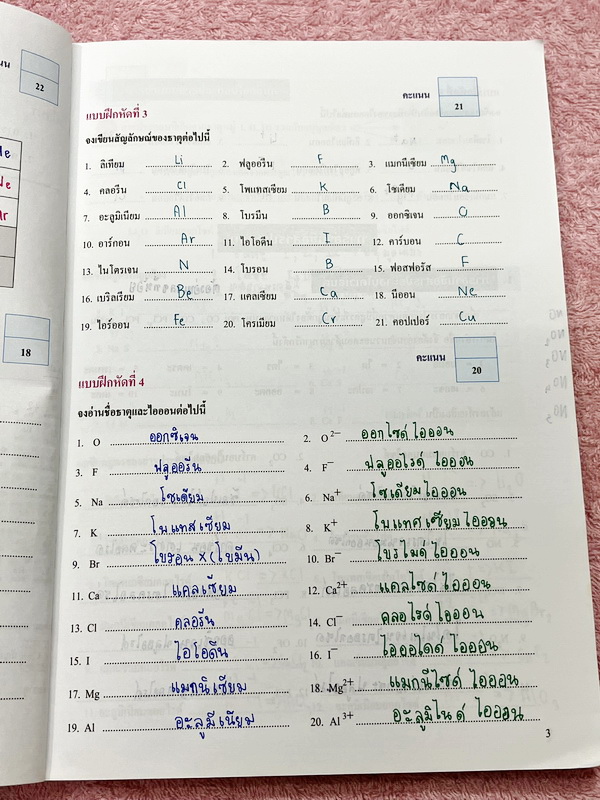 22
คะแนน
21
แบบฝึกหัดที่ 3
จงเขียนสัญลักษณ์ของธาตุต่อไปนี้
1. ลิเทียม Li 2. ฟลูออรีน F 3. แมกนีเซียม Mg
4. คลอรีน Cl 5. โพแทสเซียม K 6. โซเดียม Na
7. อะลูมิเนียม Al 8. โบรมีน B 9. ออกซิเจน O
10. อาร์กอน Ar 11. ไอโอดีน I 12. คาร์บอน C
13. ไนโตรเจน N 14. โบรอน B 15. ฟอสฟอรัส F
16. เบริลเรียม Be 17. แคลเซียม Ca 18. นีออน Ne
19. ไอร์ออน Fe 20. โครเมียม Cr 21. คอปเปอร์ Cu
18
คะแนน
20
แบบฝึกหัดที่ 4
จงอ่านชื่อธาตุและไอออนต่อไปนี้
1. O ออกซิเจน 2. O²⁻ ออกไซด์ ไอออน
3. F ฟลูออรีน 4. F⁻ ฟลูออไรด์ ไอออน
5. Na โซเดียม 6. Na⁺ โซเดียมไอออน
7. K โพแทสเซียม 8. K⁺ โพแทศเซียมไอออน
9. Br โบรอน x (โบมีน) 10. Br⁻ โบรไมด์ ไอออน
11. Ca แคลเซียม 12. Ca²⁺ แคลไซด์ ไอออน
13. Cl คลอรีน 14. Cl⁻ คลอไรด์ ไอออน
15. I ไอโอดีน 16. I⁻ ไอออไดด์ ไอออน
17. Mg แมกนิเซียม 18. Mg²⁺ แมกนีไซด์ ไอออน
19. Al อะลูมีเนียม 20. Al³⁺ อะลูมิไนด์ ไอออน
3